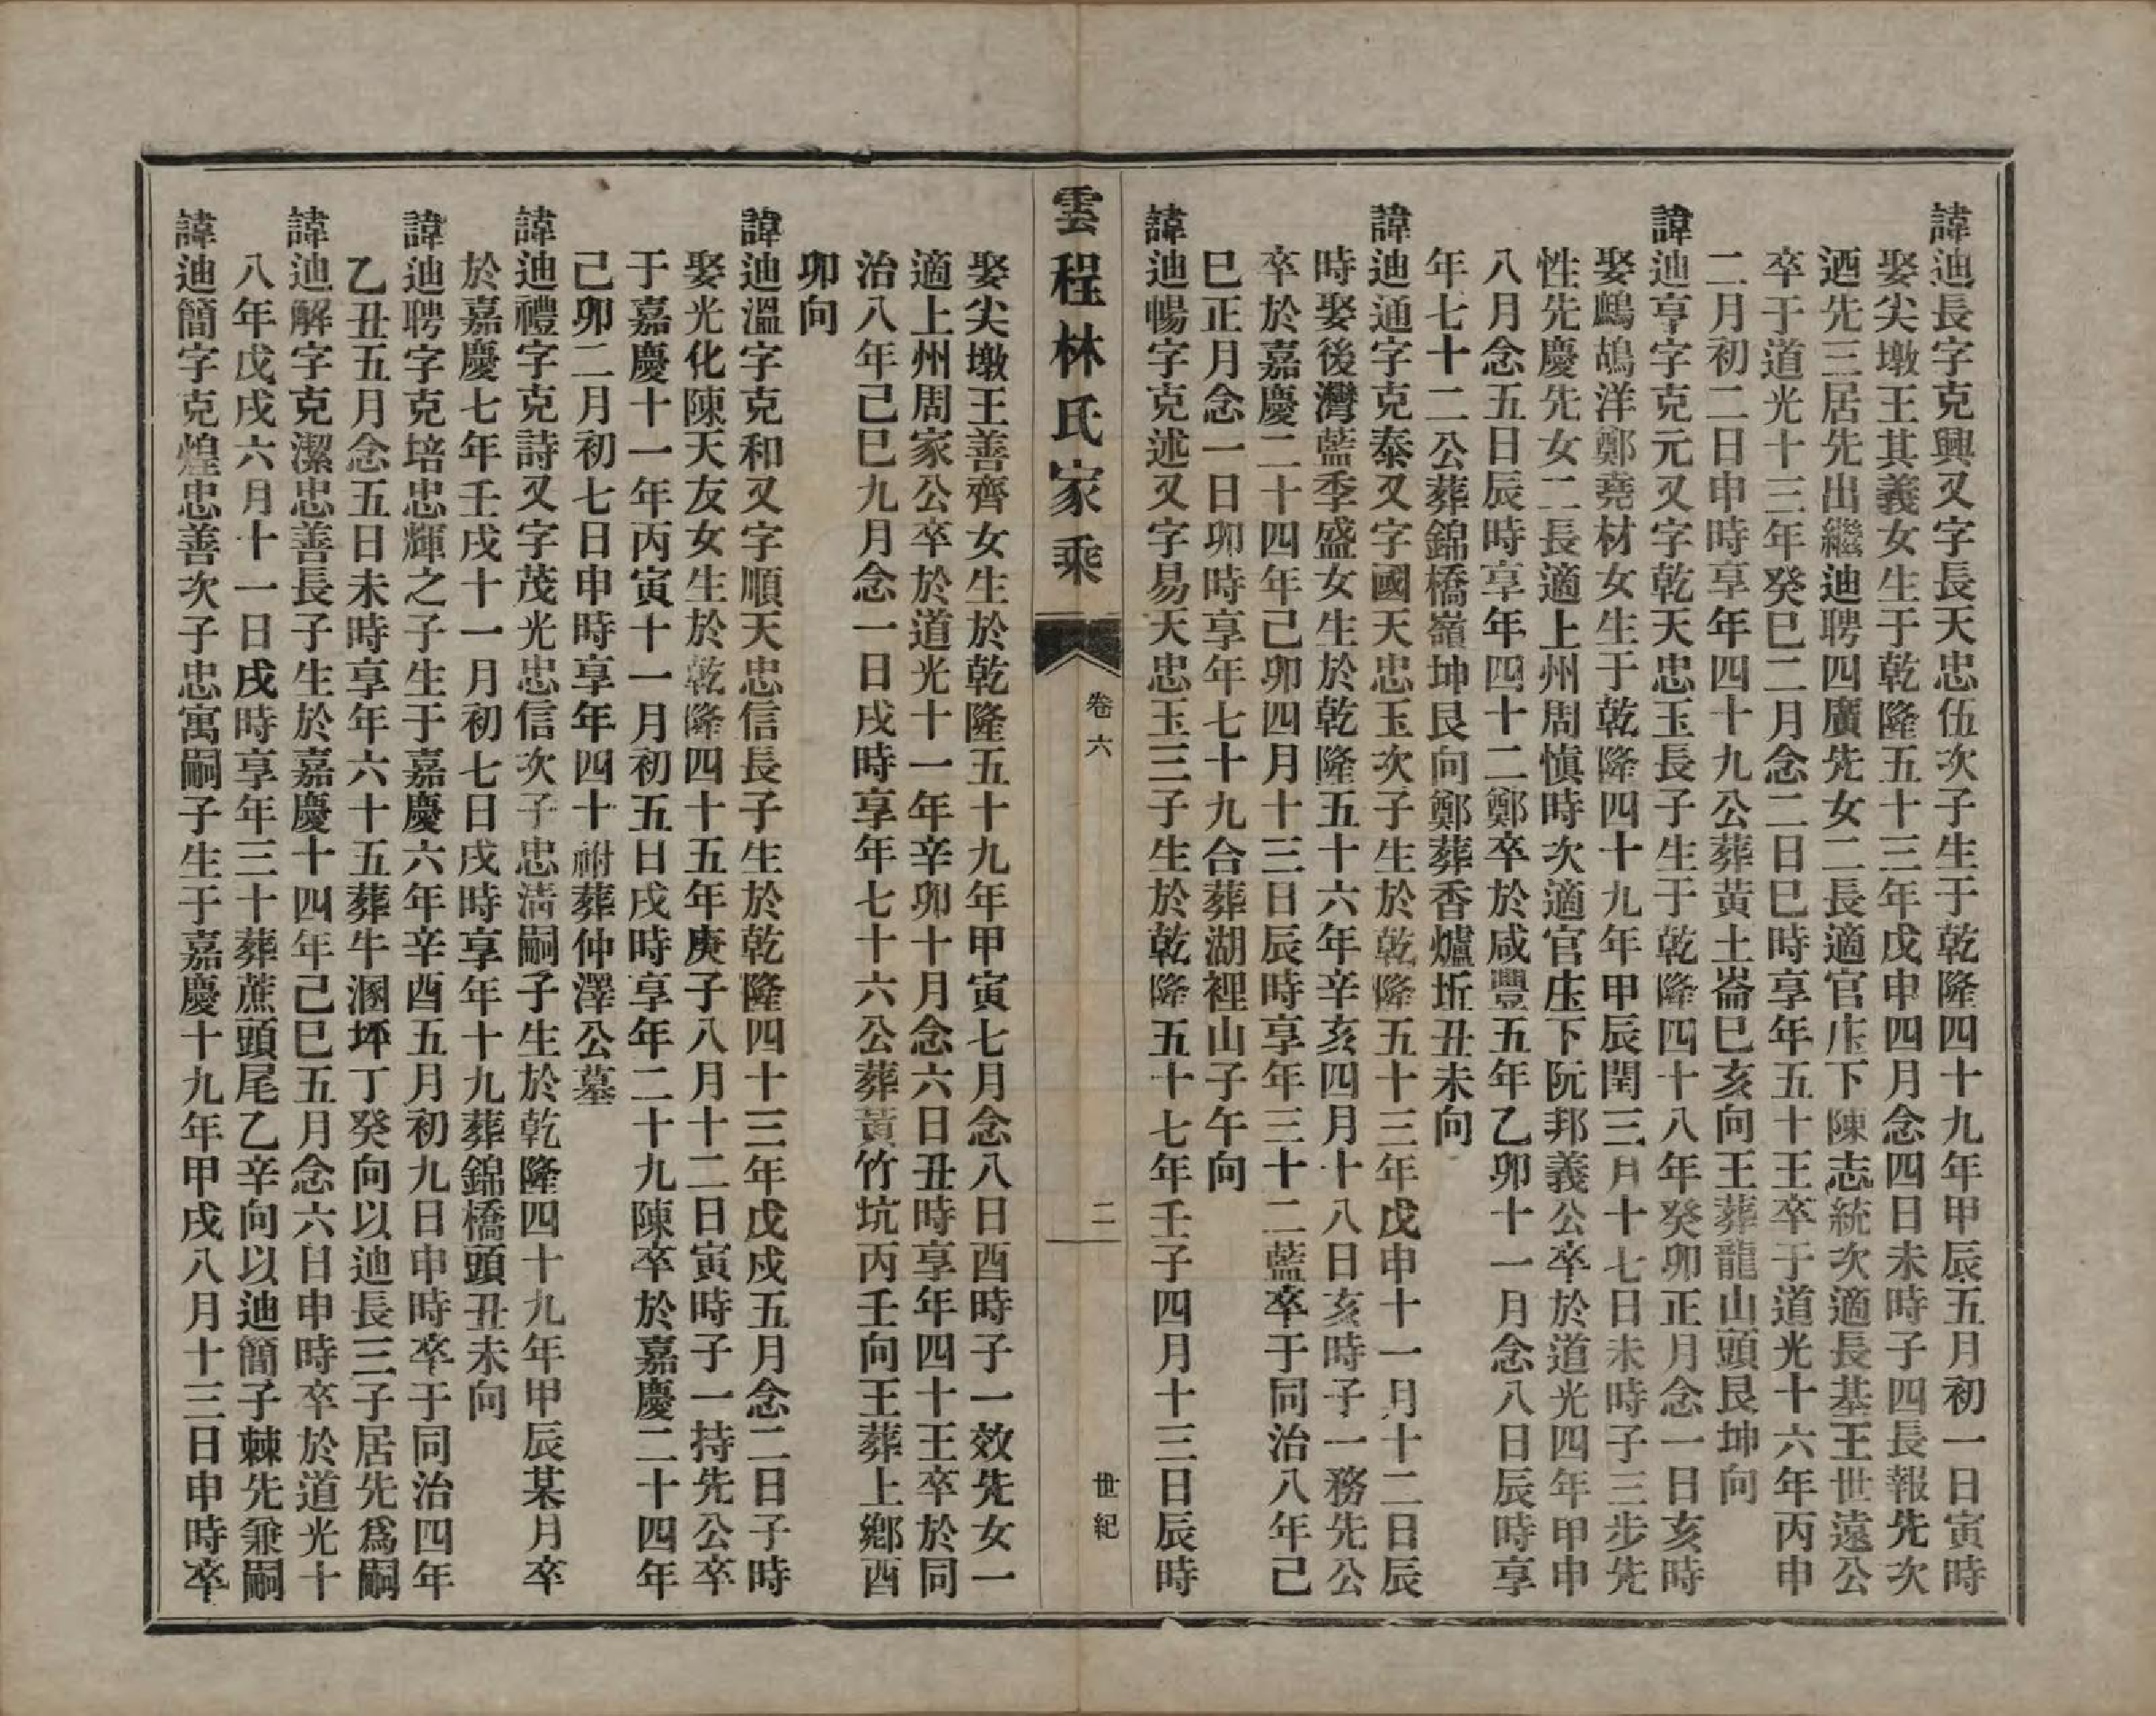 諱迪長字克興又字長天忠伍次子生于乾隆四十九年甲辰五月初一日寅時
娶尖墩王其義女生于乾隆五十三年戊申四月念四日未時子四長報先次
迺先三居先出繼迪聘四廣先女二長適官庄下陳志統次適長基王世遠公
卒于道光十三年癸巳二月念二日巳時享年五十王卒于道光十六年丙申
二月初二日申時享年四十九公葬黃土崙巳亥向王葬龍山頭艮坤向
諱迪亨字克元又字乾天忠玉長子生于乾隆四十八年癸卯正月念一日亥時
娶鷓鴣洋鄭堯材女生于乾隆四十九年甲辰閏三月十七日未時子三步先
性先慶先女二長適上州周慎時次適官庄下阮邦義公卒於道光四年甲申
八月念五日辰時享年四十二鄭卒於咸豐五年乙卯十一月念八日辰時享
年七十二公葬錦橋嶺坤艮向鄭葬香爐坵丑未向
諱迪通字克泰又字國天忠玉次子生於乾隆五十三年戊申十一月十二日辰
時娶後灣藍季盛女生於乾隆五十六年辛亥四月十八日亥時子一務先公
卒於嘉慶二十四年己卯四月十三日辰時享年三十二藍卒于同治八年己
巳正月念一日卯時享年七十九合葬湖裡山子午向
諱迪暢字克述又字易天忠玉三子生於乾隆五十七年壬子四月十三日辰時
雲程林氏家乘
卷六
二
世紀
娶尖墩王善齊女生於乾隆五十九年甲寅七月念八日酉時子一效先女一
適上州周家公卒於道光十一年辛卯十月念六日丑時享年四十王卒於同
治八年己巳九月念一日戌時享年七十六公葬黃竹坑丙壬向王葬上鄉酉
卯向
諱迪溫字克和又字順天忠信長子生於乾隆四十三年戊戌五月念二日子時
娶光化陳天友女生於乾隆四十五年庚子八月十二日寅時子一持先公卒
于嘉慶十一年丙寅十一月初五日戌時享年二十九陳卒於嘉慶二十四年
己卯二月初七日申時享年四十祔葬仲澤公墓
諱迪禮字克詩又字茂光忠信次子忠淸嗣子生於乾隆四十九年甲辰某月卒
於嘉慶七年壬戌十一月初七日戌時享年十九葬錦橋頭丑未向
諱迪聘字克培忠輝之子生于嘉慶六年辛酉五月初九日申時卒于同治四年
乙丑五月念五日未時享年六十五葬牛溷坪丁癸向以迪長三子居先爲嗣
諱迪解字克潔忠善長子生於嘉慶十四年己巳五月念六日申時卒於道光十
八年戊戌六月十一日戌時享年三十葬蔗頭尾乙辛向以迪簡子棘先兼嗣
諱迪簡字克煌忠善次子忠寓嗣子生于嘉慶十九年甲戌八月十三日申時卒